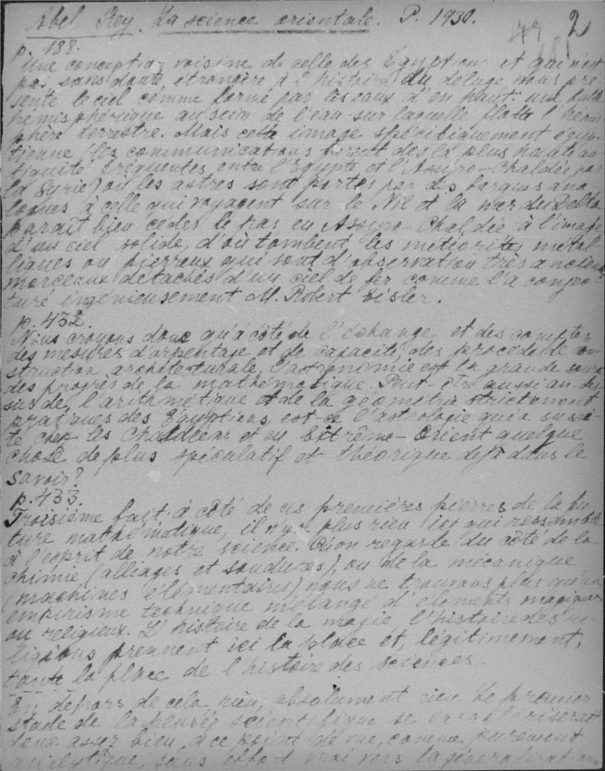 Abel Rey. La science orientale. P. 1930. 2
p. 188.
Une conception voisine de celle des Egyptiens et qui n'est
pas sans doute étrangère à l'histoire du deluge nous pré
sente le ciel comme formé par les eaux d'en haut: une bulle
hemisphérique au sein de l'eau sur laquelle flotte l'hémi
sphère terrestre. Mais cette image spécifiquement égyp-
tienne (les communications furent dès la plus haute an
tiquité fréquentes entre l'Egypte et l'Assyro-Chaldée par
la Syrie) où les astres sont portés par des barques ana
logues à celle qui voyagent sur le Nil et la mer du Delta
paraît bien céder le pas en Assyro-Chaldée à l'image
d'un ciel solide, d'où tombent les météorites métal
liques ou pierreux qui sont d'observation très ancienne
morceaux détachés d'un ciel de fer comme l'a conjec
turé ingénieusement M. Robert Eisler.
p. 432.
Nous croyons donc qu'à côté de l'échange et des comptes
des mesures d'arpentage et de capacité, des procédés de con
struction architecturale, l'astronomie est la grande source
des progrès de la mathématique. Peut-être aussi au-des
sus de l'arithmétique et de la géométrie strictement
pratiques des Egyptiens, est-ce l'astrologie qui a susci
té chez les Chaldéens et en Extrême-Orient quelque
chose de plus spéculatif et théorique déjà dans le
savoir?
p. 433.
Troisième fait, à côté de ces premières pierres de la fu
ture mathématique, il n'y a plus rien ici qui ressemble
à l'esprit de notre science. Si on regarde du côté de la
chimie (alliages et soudures), ou de la mécanique
(machines élémentaires) nous ne trouvons plus qu'un
empirisme technique mélangé d'éléments magiques
ou religieux. L'histoire de la magie, l'histoire des re-
ligions prennent ici la place et, légitimement,
toute la place de l'histoire des sciences.
En dehors de cela, rien, absolument rien. Le premier
stade de la pensée scientifique se caractériserait
donc assez bien, à ce point de vue, comme purement
analytique, sans effort vrai vers la généralisation